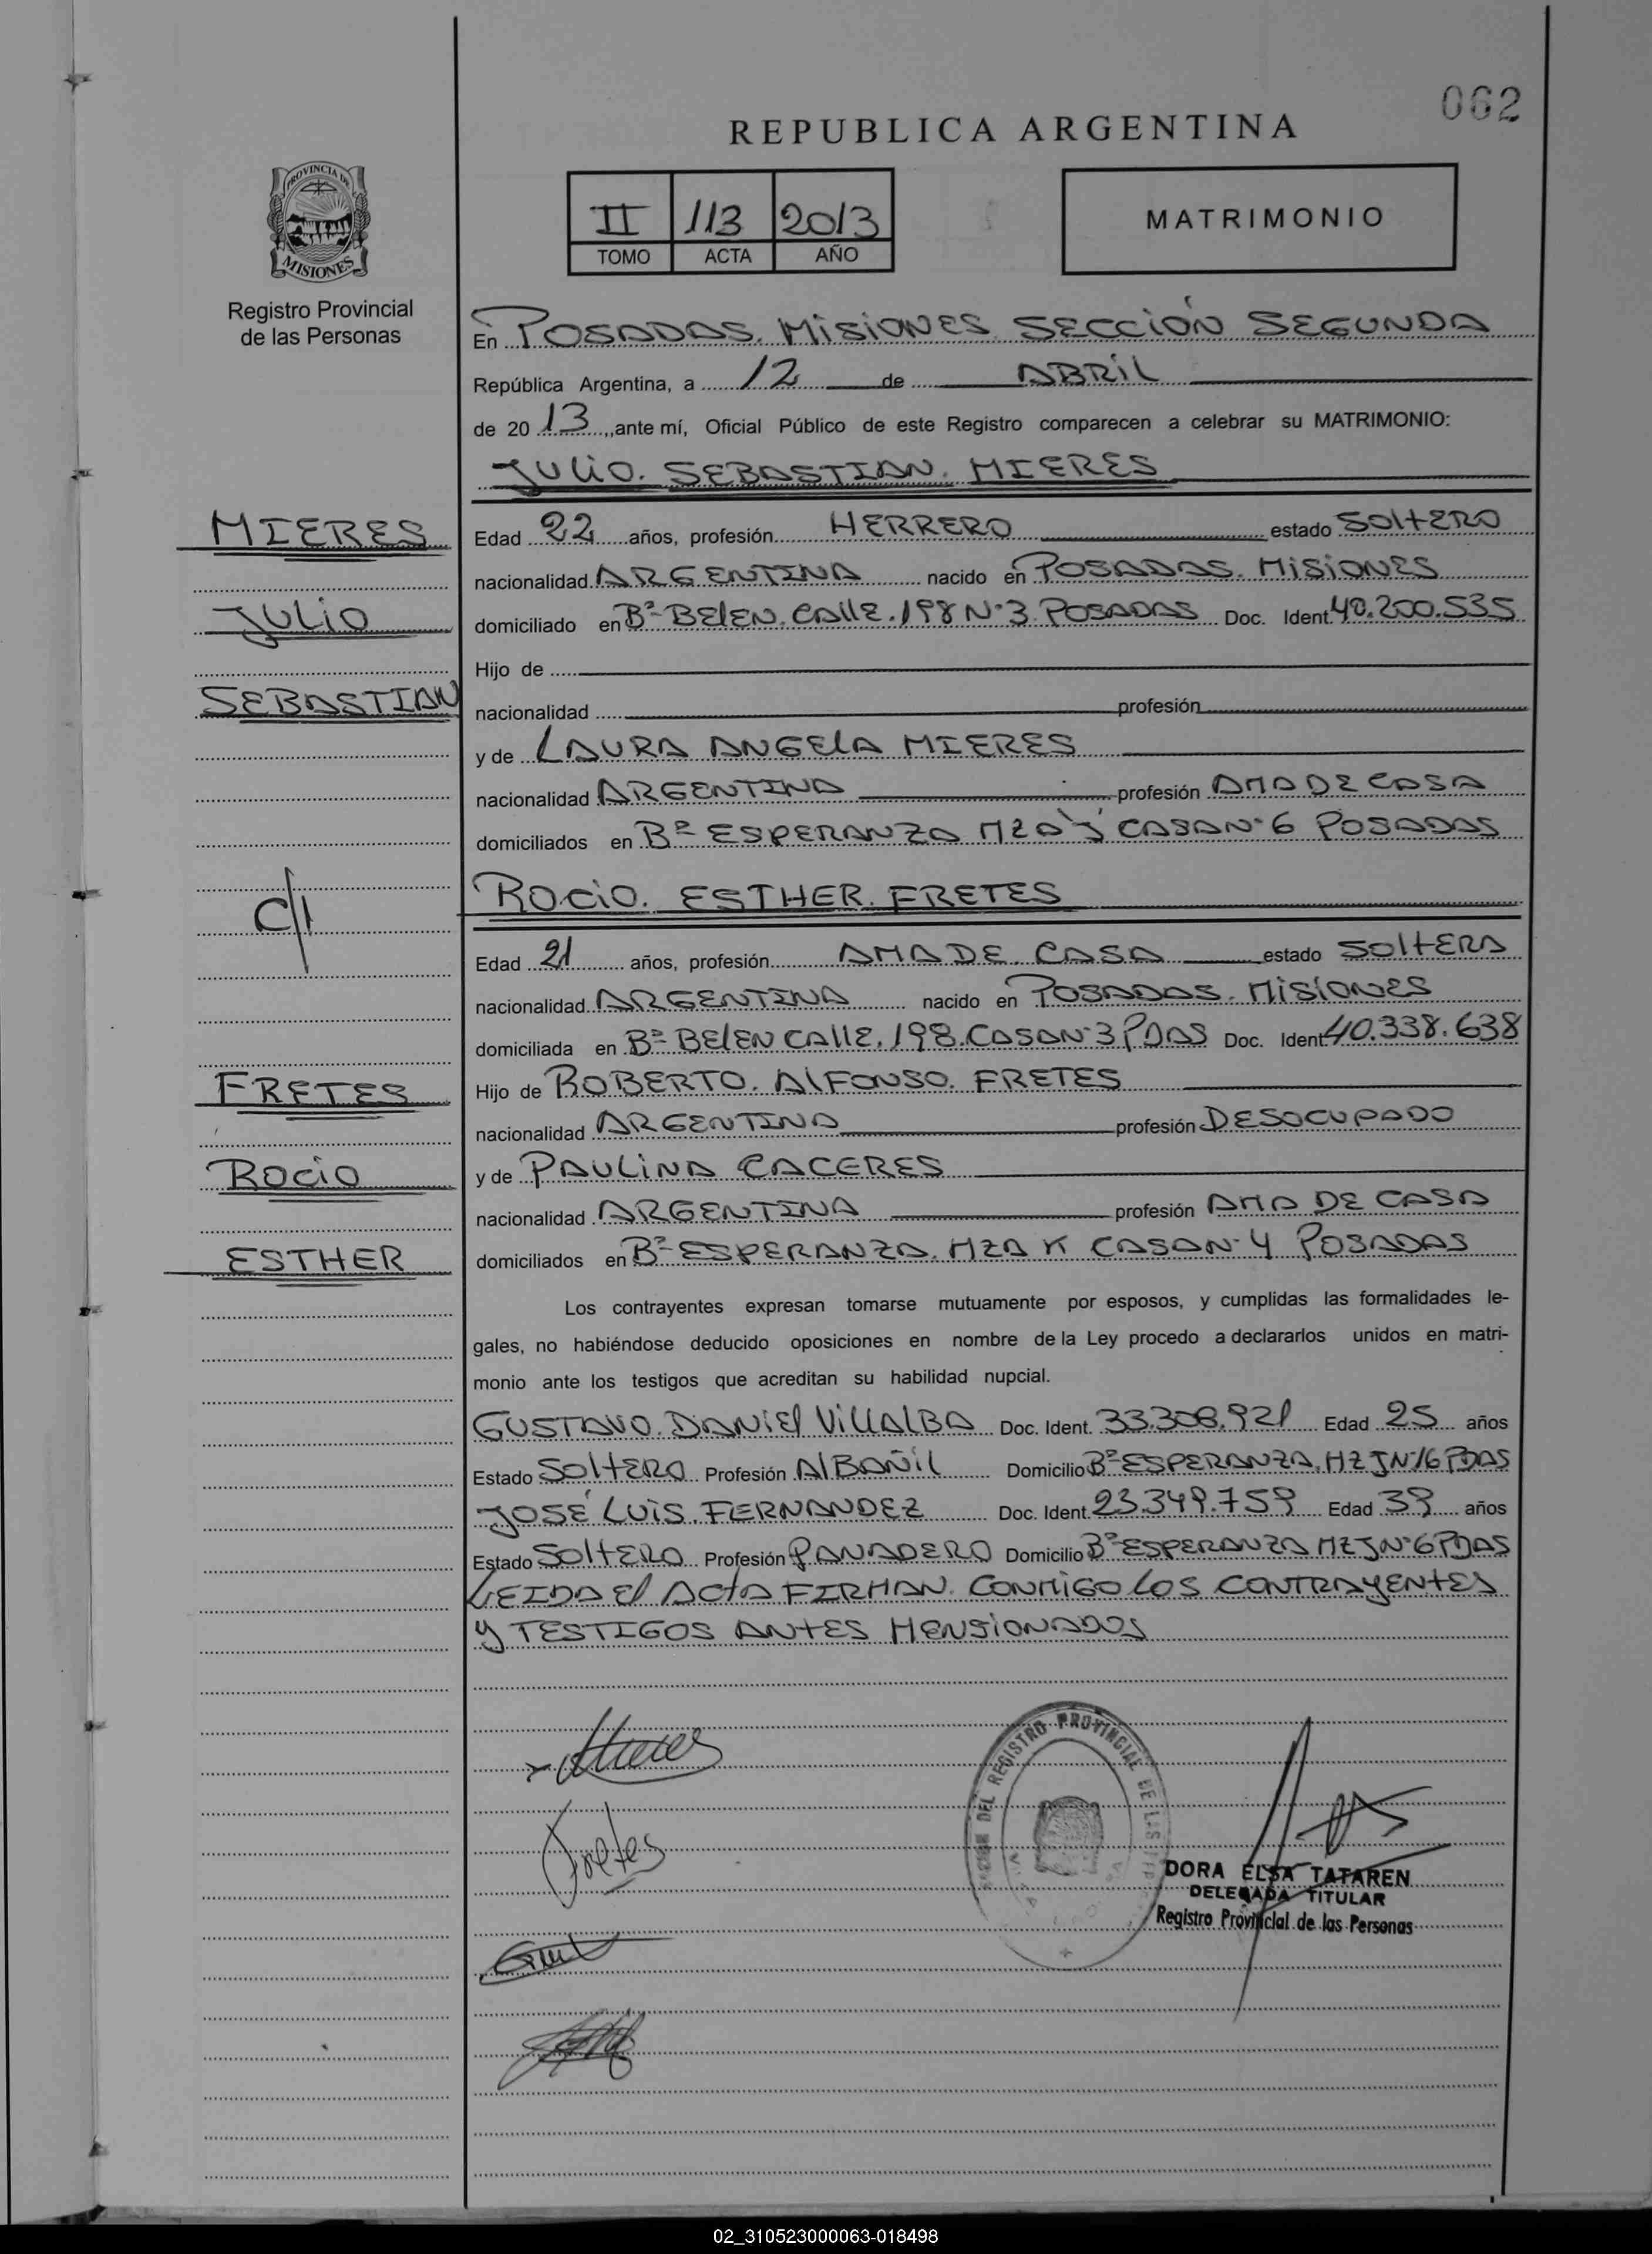 062
REPUBLICA ARGENTINA
PROVINCIA DE
MISIONES
Registro Provincial
de las Personas
II 113 2013
TOMO ACTA AÑO
MATRIMONIO
En POSADAS. MISIONES. SECCIÓN SEGUNDA
República Argentina, a 12 de ABRIL
de 20 13, ante mí, Oficial Público de este Registro comparecen a celebrar su MATRIMONIO:
JULIO. SEBASTIAN. MIERES
MIERES
JULIO
SEBASTIAN
Edad 22 años, profesión HERRERO estado SOLTERO
nacionalidad ARGENTINA nacido en POSADAS. MISIONES
domiciliado en Bº BELEN. CALLE. 198 Nº 3 POSADAS Doc. Ident. 40.200.535
Hijo de
nacionalidad profesión
y de LAURA ANGELA MIERES
nacionalidad ARGENTINA profesión AMA DE CASA
domiciliados en Bº ESPERANZA MZA J CASA Nº 6 POSADAS
C//
ROCIO. ESTHER. FRETES
Edad 21 años, profesión AMA DE CASA estado SOLTERA
nacionalidad ARGENTINA nacido en POSADAS. MISIONES
domiciliada en Bº BELEN CALLE. 198. CASA Nº 3 PDAS Doc. Ident 40.338.638
FRETES
ROCIO
ESTHER
Hijo de ROBERTO. ALFONSO. FRETES
nacionalidad ARGENTINA profesión DESOCUPADO
y de PAULINA CACERES
nacionalidad ARGENTINA profesión AMA DE CASA
domiciliados en Bº ESPERANZA. MZA K CASA Nº 4 POSADAS
Los contrayentes expresan tomarse mutuamente por esposos, y cumplidas las formalidades le-
gales, no habiéndose deducido oposiciones en nombre de la Ley procedo a declararlos unidos en matri-
monio ante los testigos que acreditan su habilidad nupcial.
GUSTAVO. DANIEL VILLALBA Doc. Ident. 33.308.921 Edad 25 años
Estado SOLTERO Profesión ALBAÑIL Domicilio Bº ESPERANZA. MZ J Nº 16 PDAS
JOSÉ LUIS. FERNANDEZ Doc. Ident. 23.349.759 Edad 39 años
Estado SOLTERO Profesión PANADERO Domicilio Bº ESPERANZA MZ J Nº 6 PDAS
LEIDA El ACTA FIRMAN. CONMIGO LOS CONTRAYENTES
Y TESTIGOS ANTES MENSIONADOS
Mieres
Fretes
DEL REGISTRO PROVINCIAL DE LAS
DORA ELSA TATAREN
DELEGADA TITULAR
Registro Provincial de las Personas
02_310523000063-018498